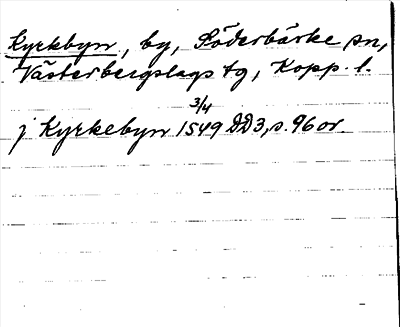 Kyrkbyn, by, Söderbärke sn,
Västerbergslags tg, Kopp. l.
3/4
j Kyrkebyn 1549 DD3, s. 96 or.